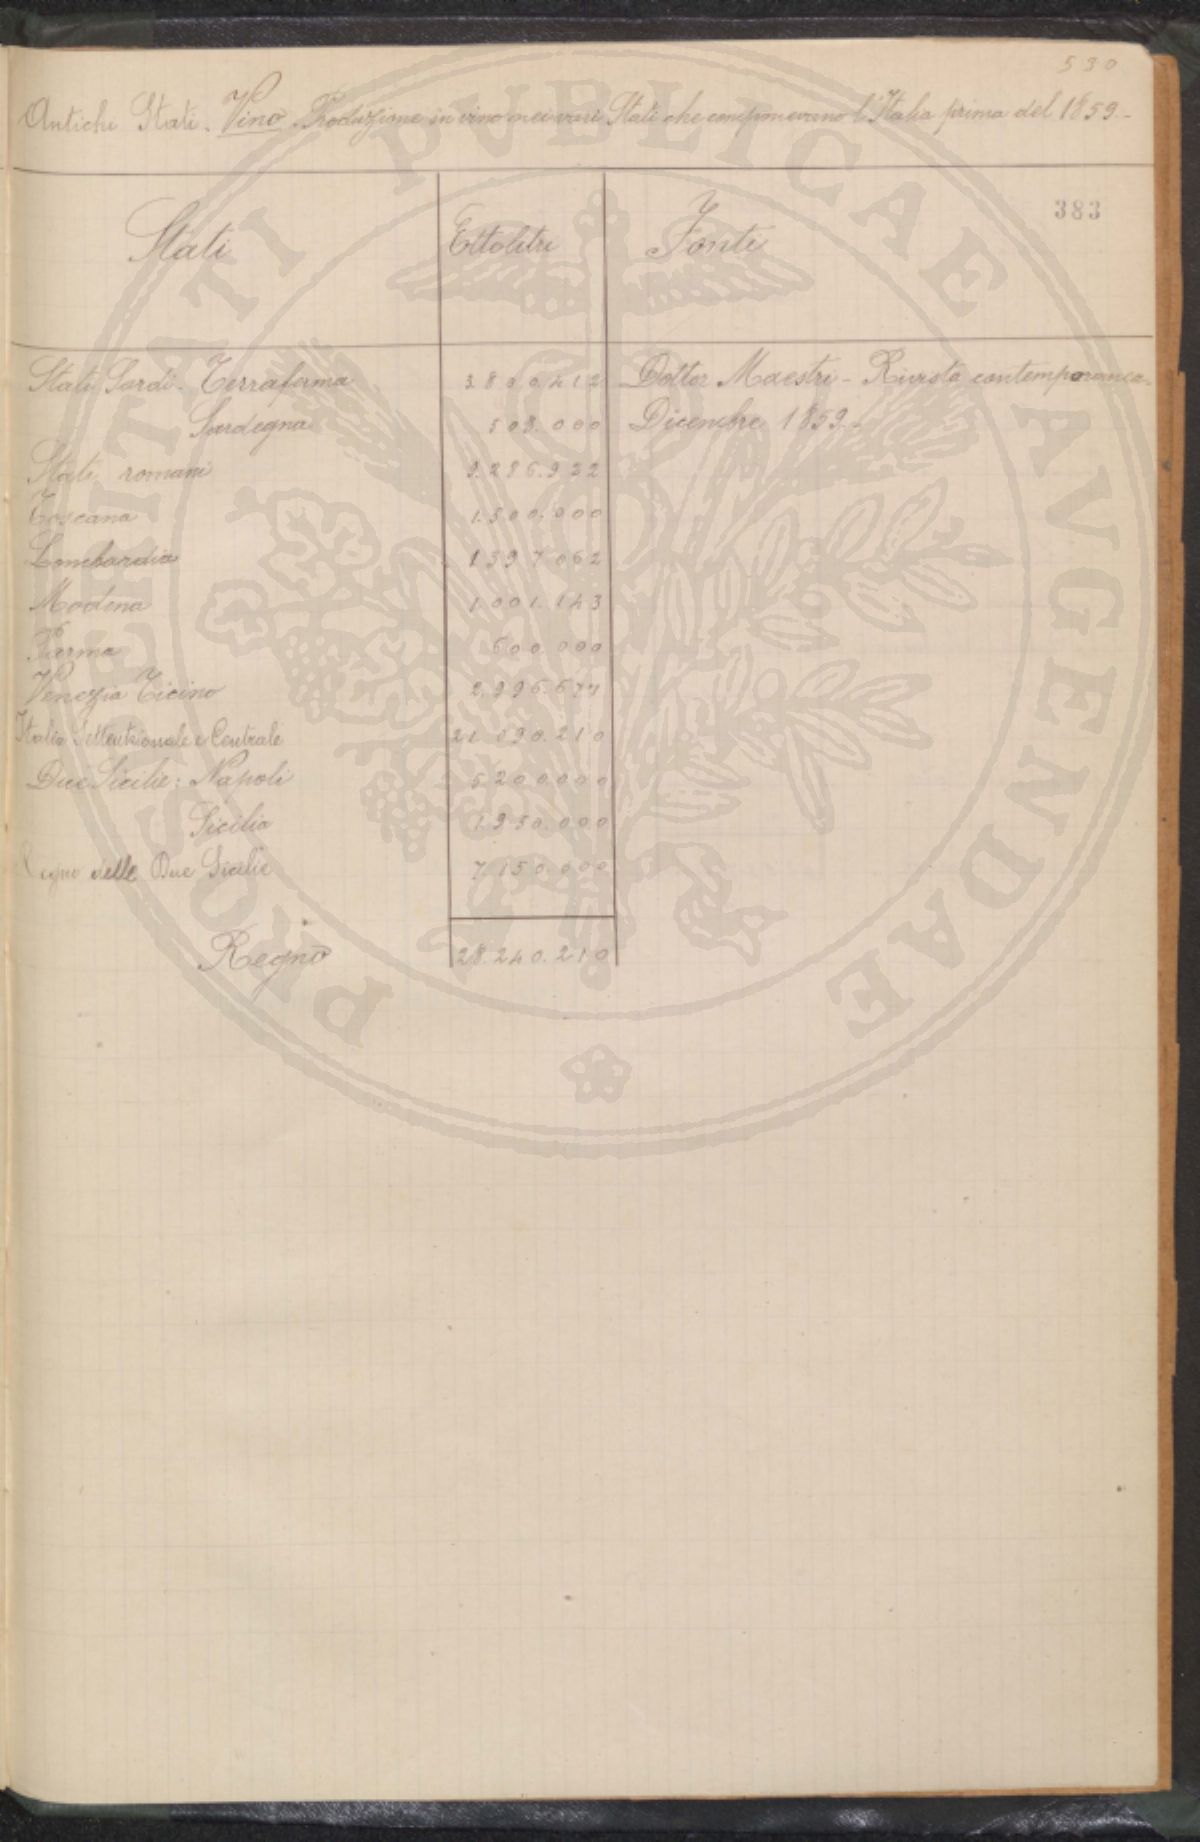 530
Antichi Stati. Vino. Produzione in vino nei vari Stati che componevano l'Italia prima del 1859.-
383
Stati Ettolitri Fonti
Stati Sardi. Terraferma 3.800.412 Dottor Maestri - Rivista contemporanea.
Sardegna 508.000 Dicembre 1859.-
Stati romani 9.286.922
Toscana 1.500.000
Lombardia 1397062
Modena 1.001.143
Parma 600.000
Venezia Ticino 2.996.671
Italia Settentrionale e Centrale 21.090.210
Due Sicilie: Napoli 5.200.000
Sicilia 1.950.000
Regno delle Due Sicilie 7.150.000
Regno 28.240.210
PROSPERITATI PVBLICAE AVGENDAE